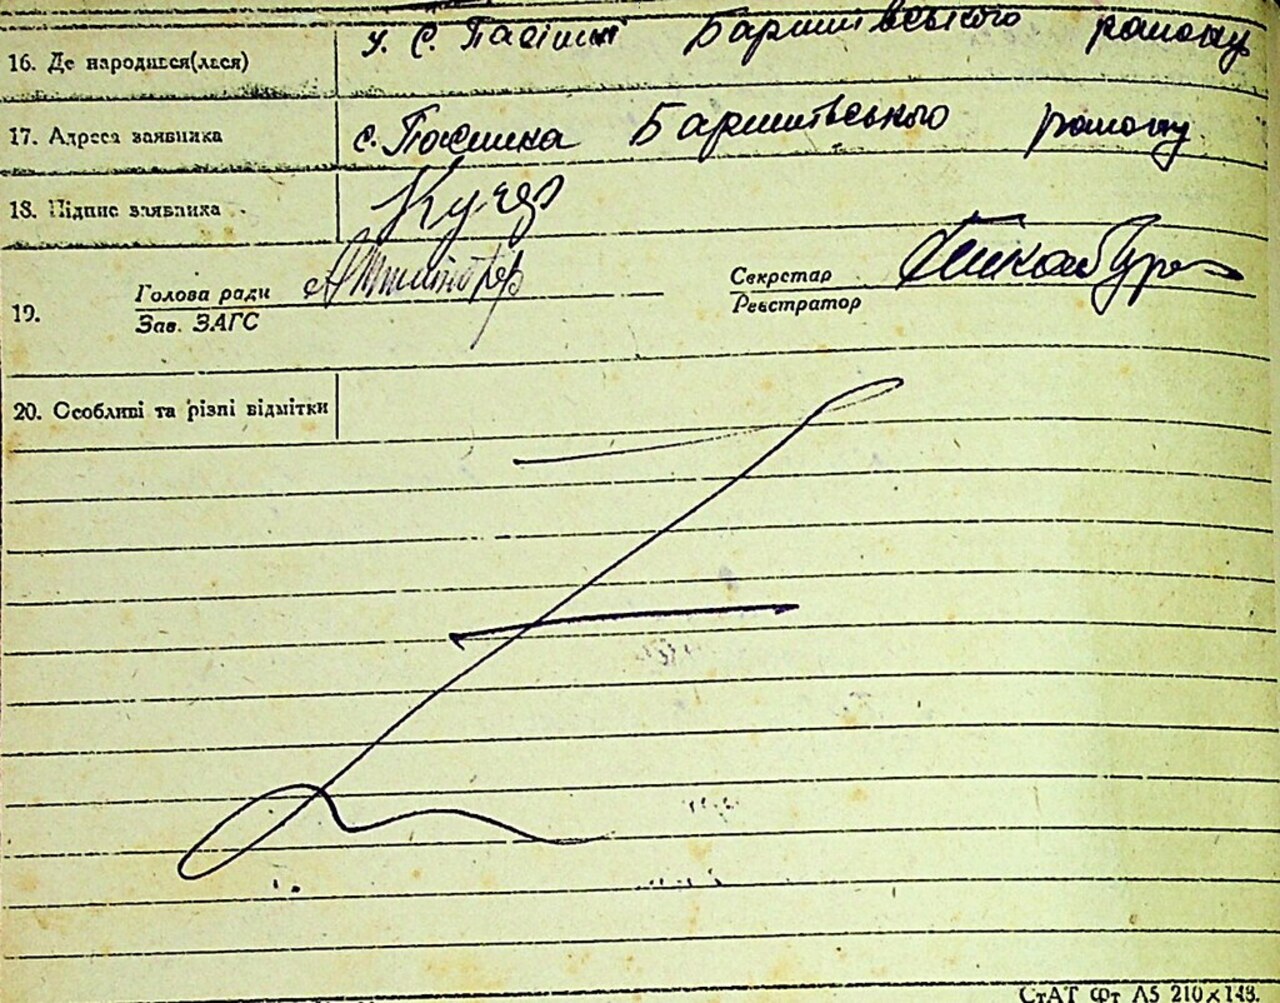 16. Де народився(лася) у. с. Пасішні Баришівського району
17. Адреса заявника с. Пасішна Баришівського району
18. Підпис заявника
19. Голова ради
Зав. ЗАГС
Секретар
Реєстратор
20. Особливі та різні відмітки
СтАТ Фт А5 210×148.